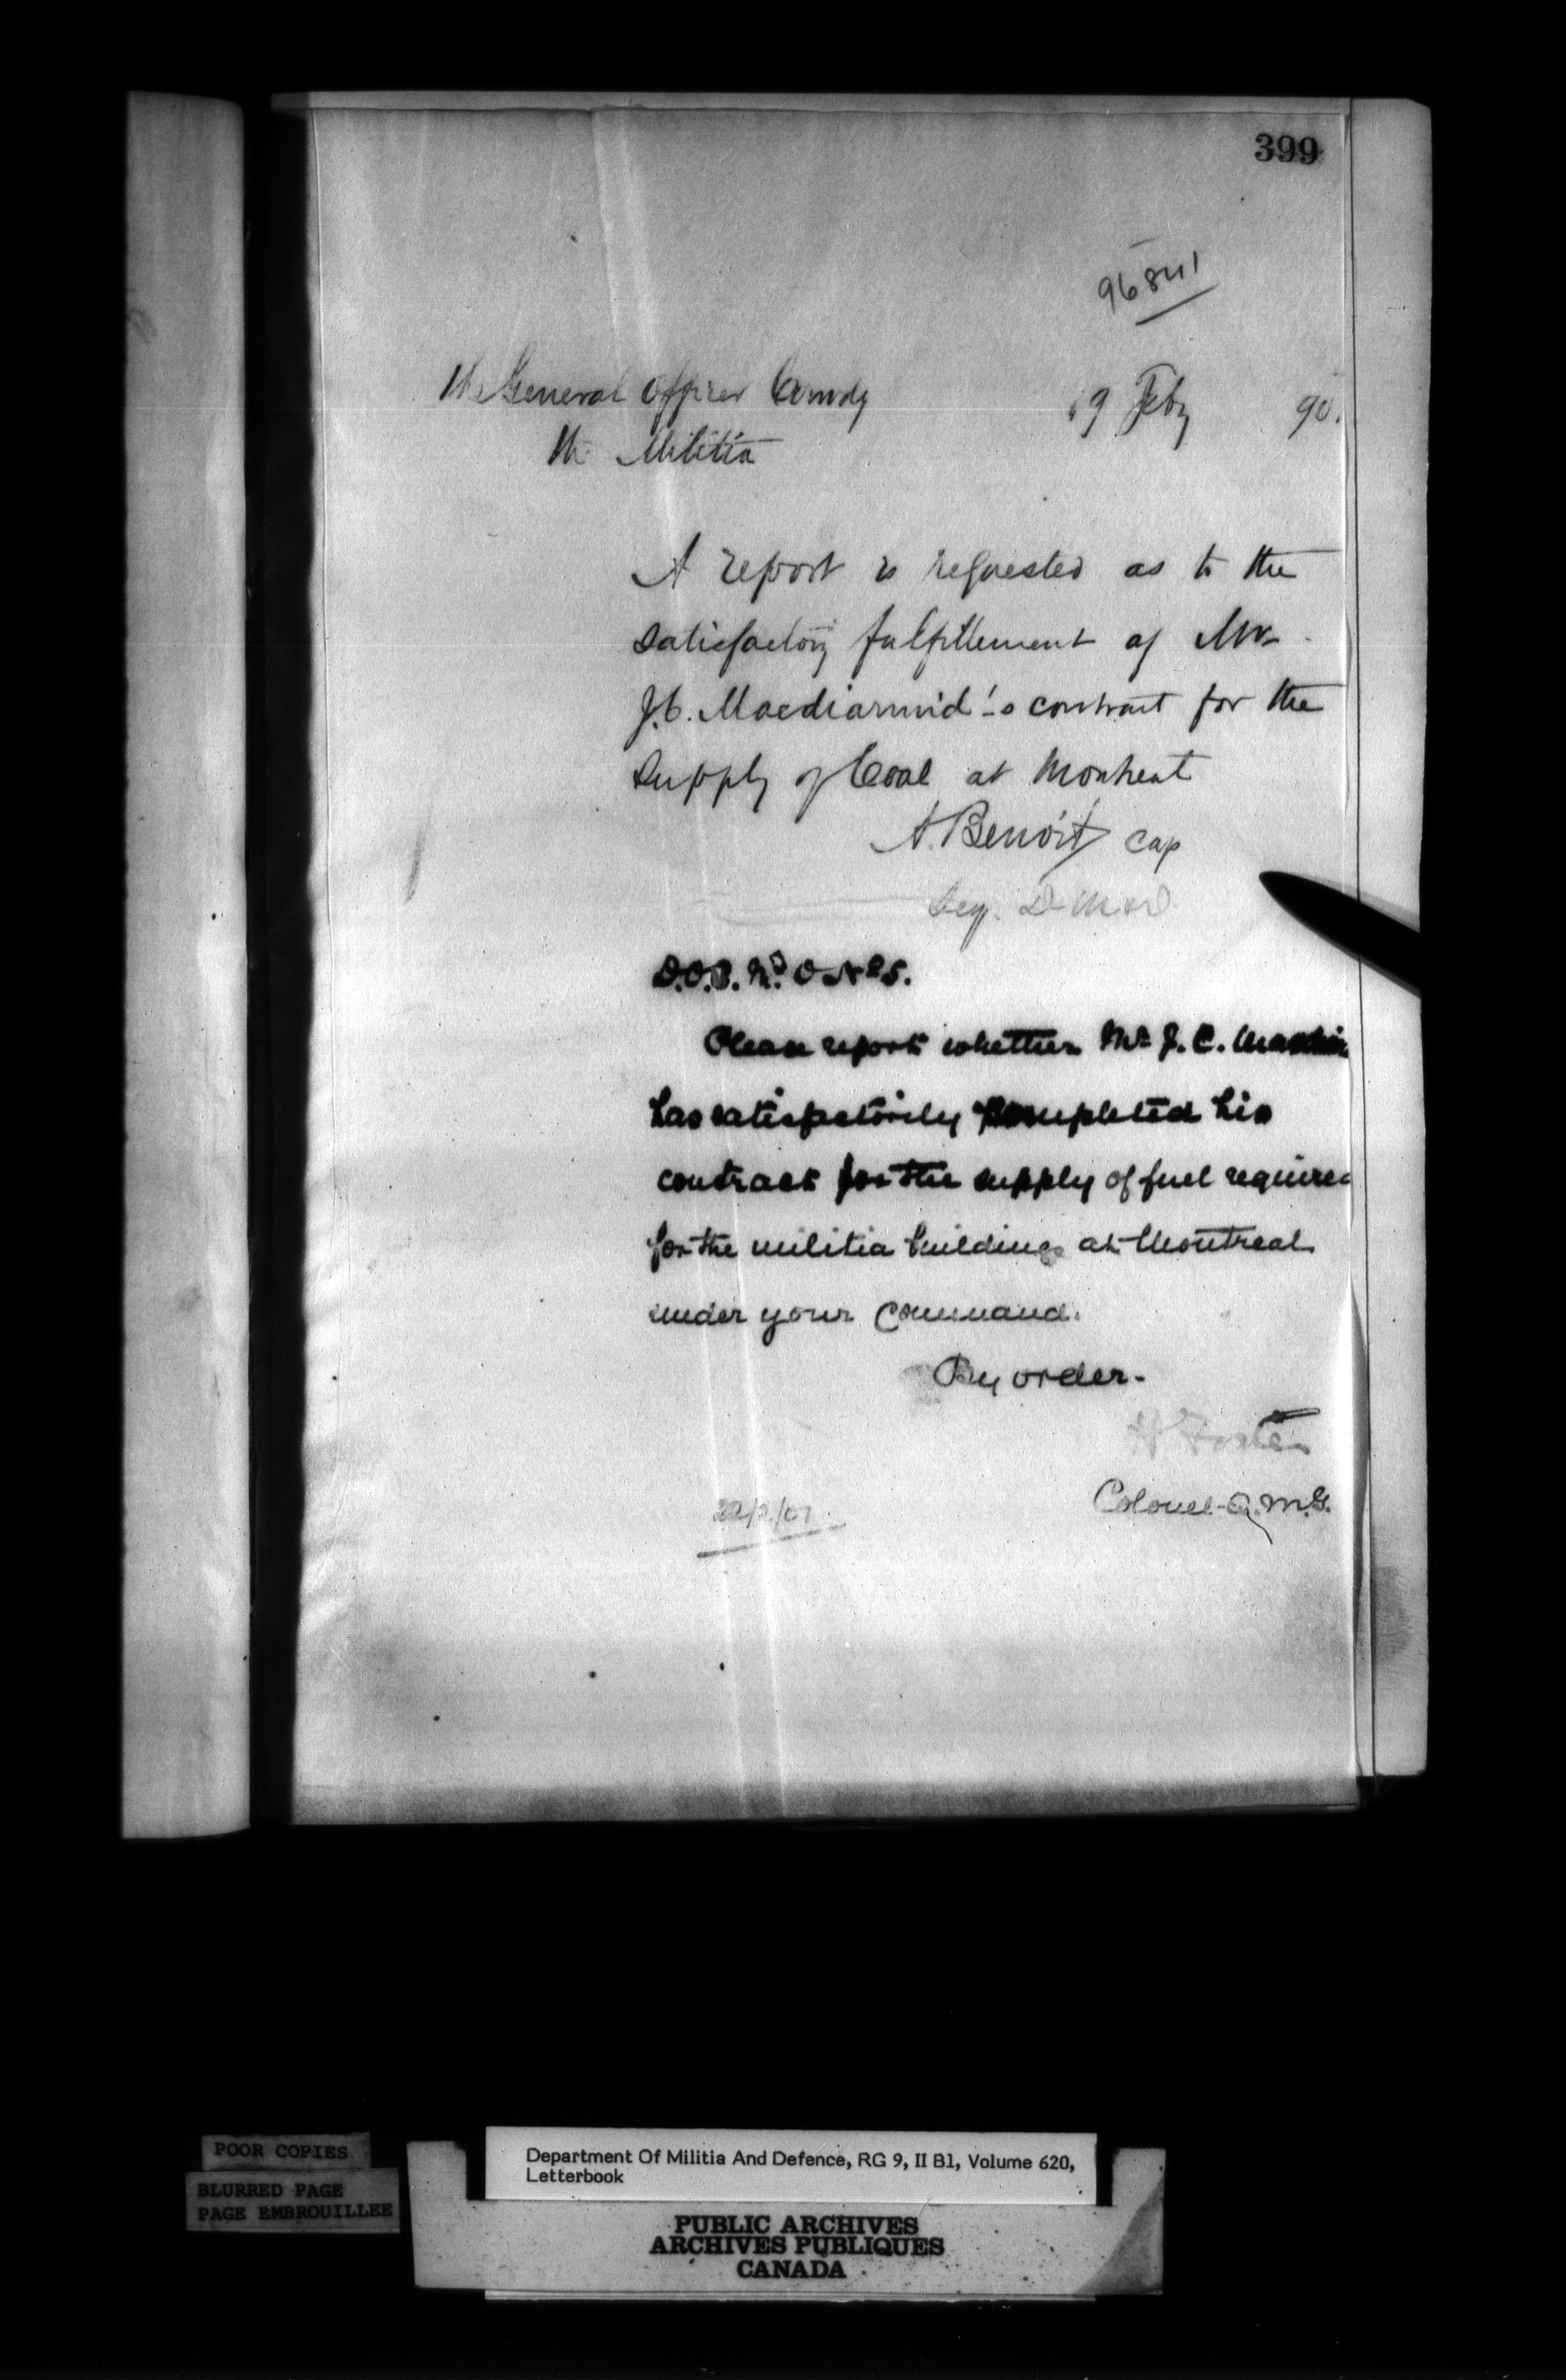 399
96841
The General Officer Comdg
19 Feby 90.
The Militia
A report is requested as to the
satisfactory fulfillement of Mr
J.C. Macdiarmid's contract for the
supply of Coal at Montreal
A. Benoit Cap
Secy. D M & D
D.O.C. M.D. 5.
Please report whether Mr J. C. Macdia
has satisfactorily completed his
contract for the supply of fuel required
for the militia buildings at Montreal
under your command.
By order.
H Foster
Colonel-Q.M.G.
22/2/01
POOR COPIES
BLURRED PAGE
PAGE EMBROUILLEE
Department Of Militia And Defence, RG 9, II B1, Volume 620,
Letterbook
PUBLIC ARCHIVES
ARCHIVES PUBLIQUES
CANADA